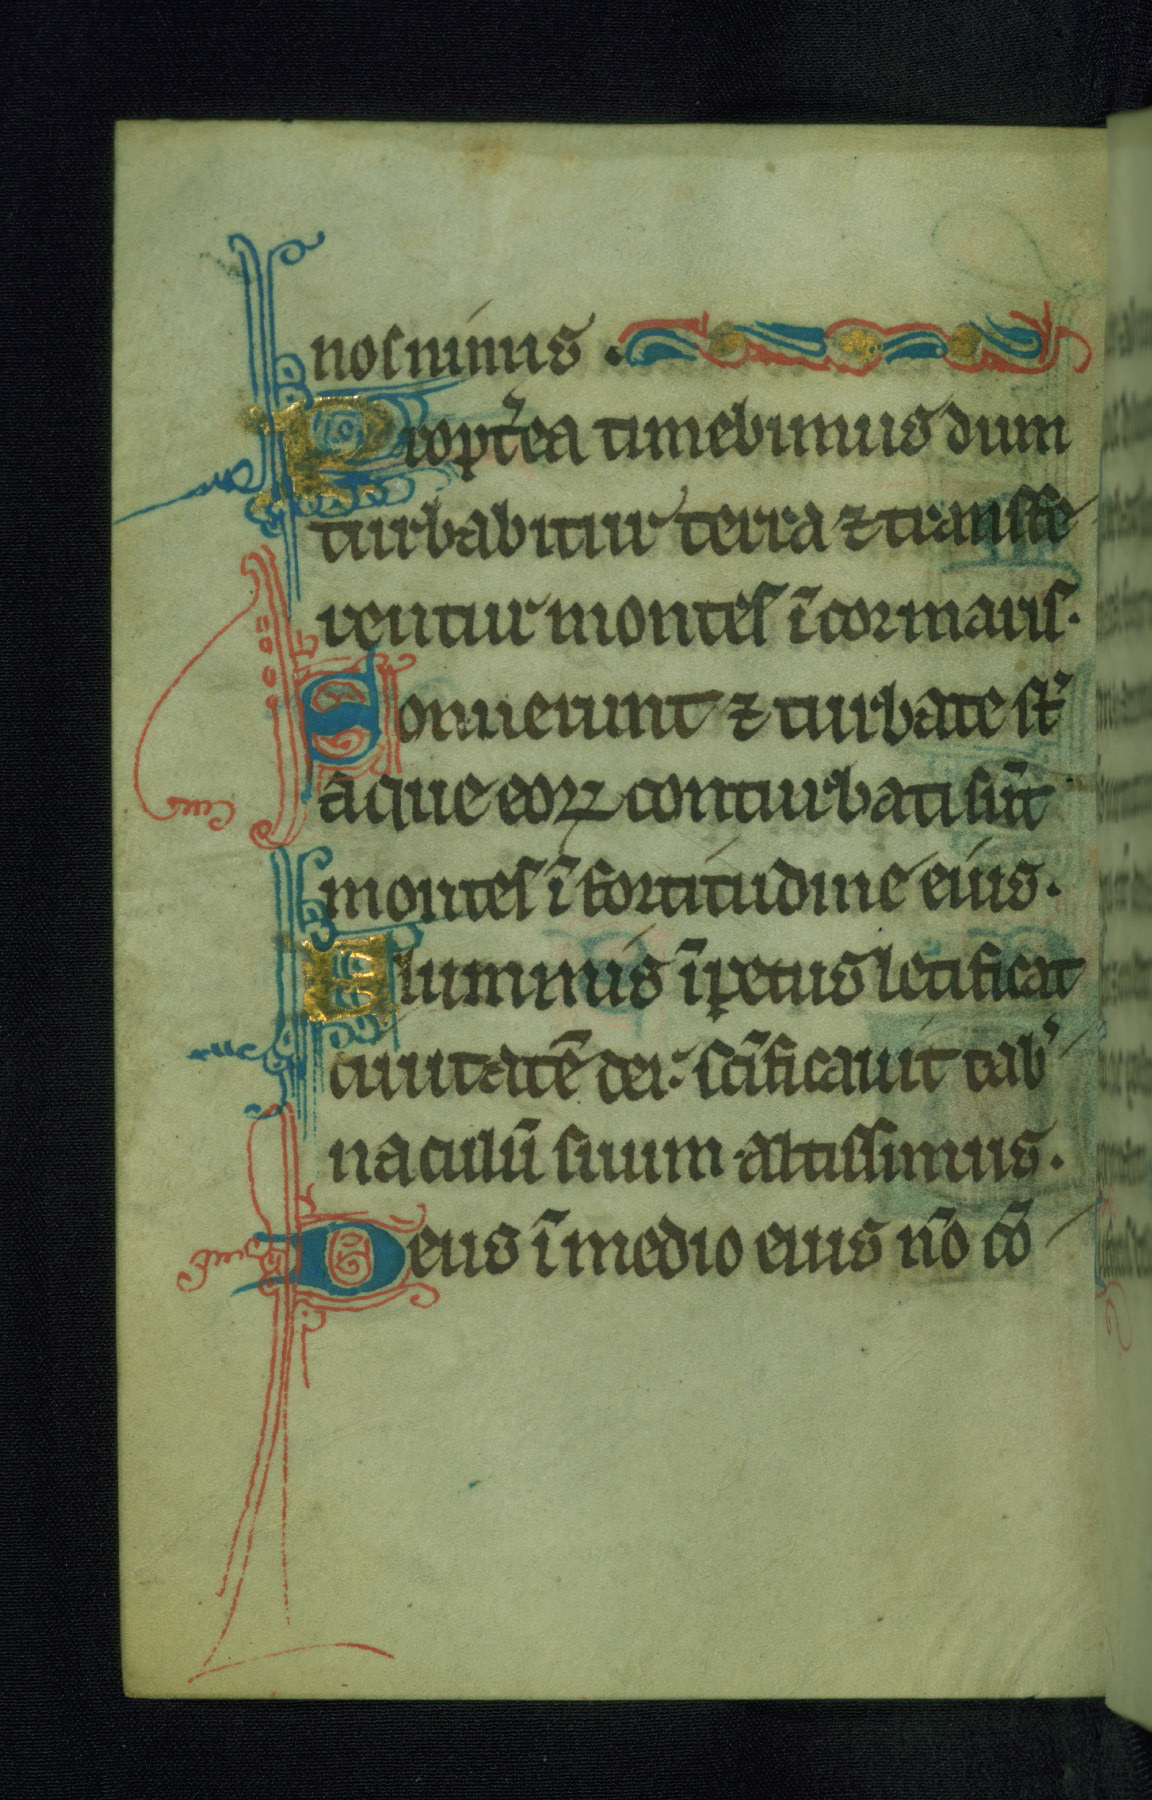 nos nimis .
Propt̾ea timebimus dum
turbabitur terra ⁊ transfe
rentur montes ī cor maris.
Sonuerunt ⁊ turbate st̄
aque eoꝝ conturbati sūt
montes ī fortitudine eius.
Fluminis īpetus letificat
ciuitatē dei: scīficauit tab̾
naculū suum altissimus.
Deus ī medio eius nō cō